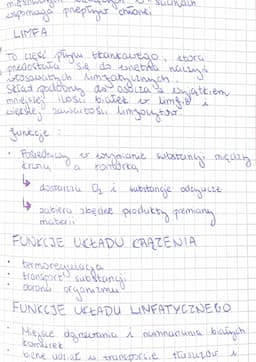 wspomaga przepływ chłonki
LIMFA
To część płynu tkankowego, która
przedostała się do światła naczyń
włosowatych limfatycznych.
Skład podobny do osocza z wyjątkiem
mniejszej ilości białek w limfie i
większej zawartości limfocytów.
funkcje:
• Pośredniczy w wymianie substancji między
krwią a komórką
↳ dostarcza O₂ i substancje odżywcze
↳ zabiera zbędne produkty przemiany
materii
FUNKCJE UKŁADU KRĄŻENIA
• termoregulacja
• transport substancji
• obrona organizmu
FUNKCJE UKŁADU LINFATYCZNEGO
• Miejsce dojrzewania i namnażania białych
komórek
• bierze udział w transporcie tłuszczów